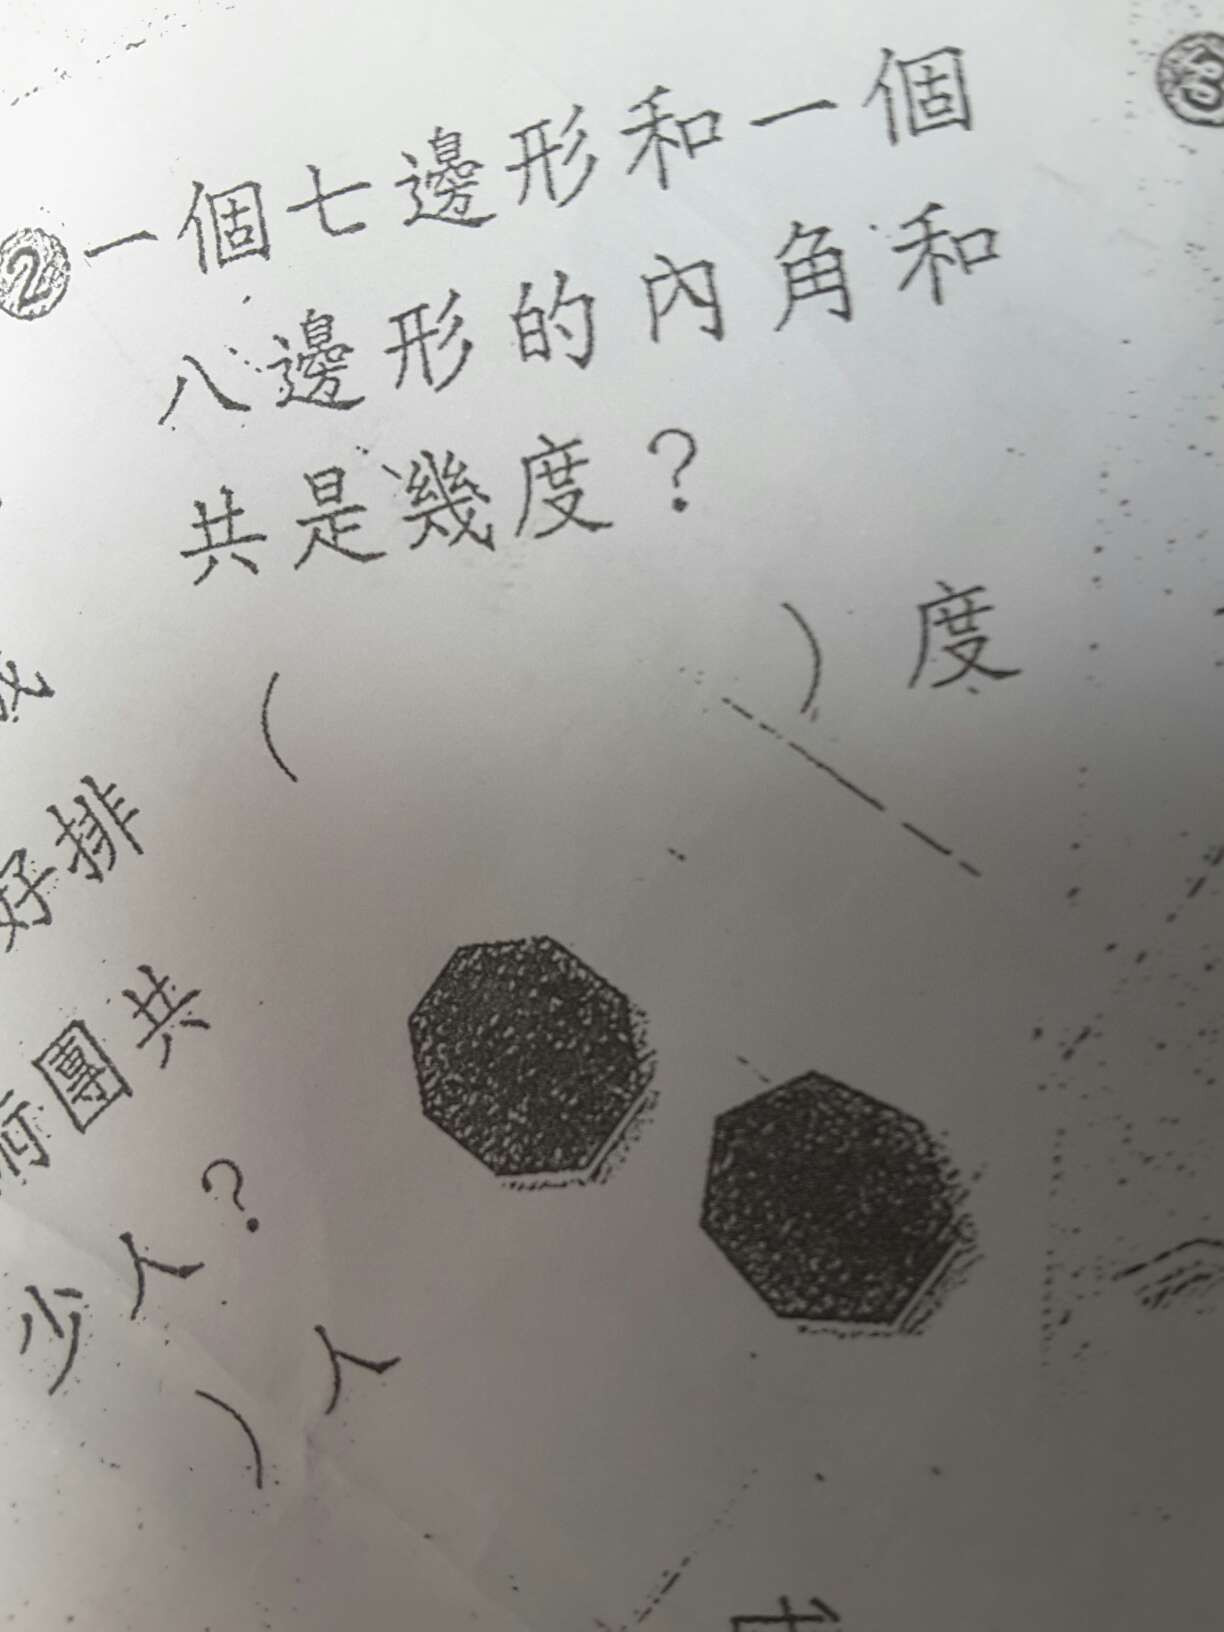 ② 一個七邊形和一個
八邊形的內角和
共是幾度？
（ ）度
③
好排
團共
少人？
）人